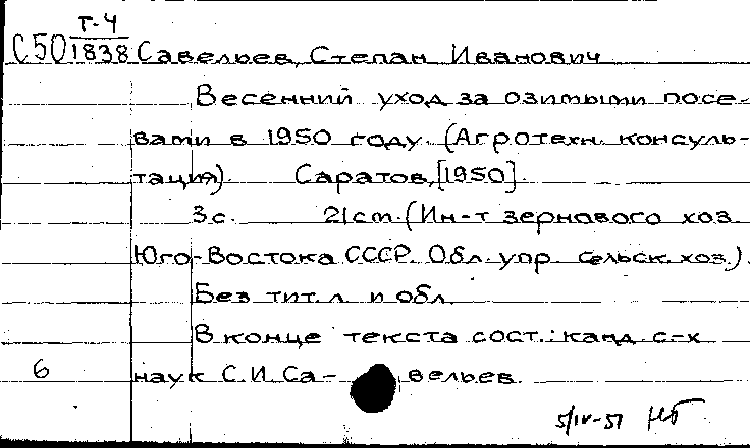 Т-4
С50 1838 Савельев, Степан Иванович
Весенний уход за озимыми посе-
вами в 1950 году. (Агротехн. консуль-
тация). Саратов, [1950].
3 с. 21 см. (Ин-т зернового хоз.
Юго-Востока СССР. Обл. упр. сельск. хоз.).
Без тит. л. и обл.
В конце текста сост.: канд. с-х
6 наук С. И. Са- вельев.
5/IV-51 НБ